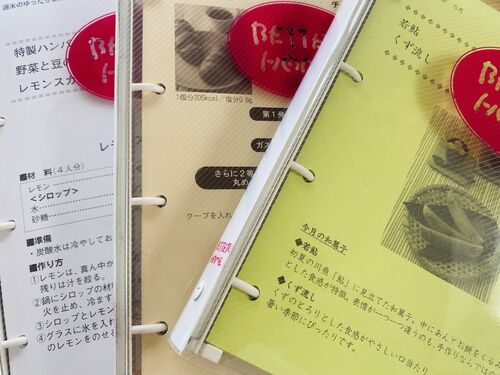 週末のゆったり
特製ハンバ
野菜と豆の
レモンスカ
レ
■材 料（4人分）
レモン
<シロップ>
水
砂糖
■準備
・炭酸水は冷やしてお
■作り方
①レモンは、真ん中か
残りは汁を絞る。
②鍋にシロップの材料
火を止め、冷ます
③シロップとレモン
④グラスに氷を入れ
のレモンをのせる
BETTE
1個分(305kcal)／塩分0.6g
第1発
ガス
さらに2等
丸め
クープを入れ
BETTE
トバル
若鮎
くず流し
5月
今月の和菓子
◆若鮎
初夏の川魚「鮎」に見立てた和菓子。中にあんとお餅をくるみ
とした食感が特徴。表情が一つ一つ違うのも、手作りならではの
◆くず流し
くずのとろりとした食感がやさしい口当たり
暑い季節にぴったりです。